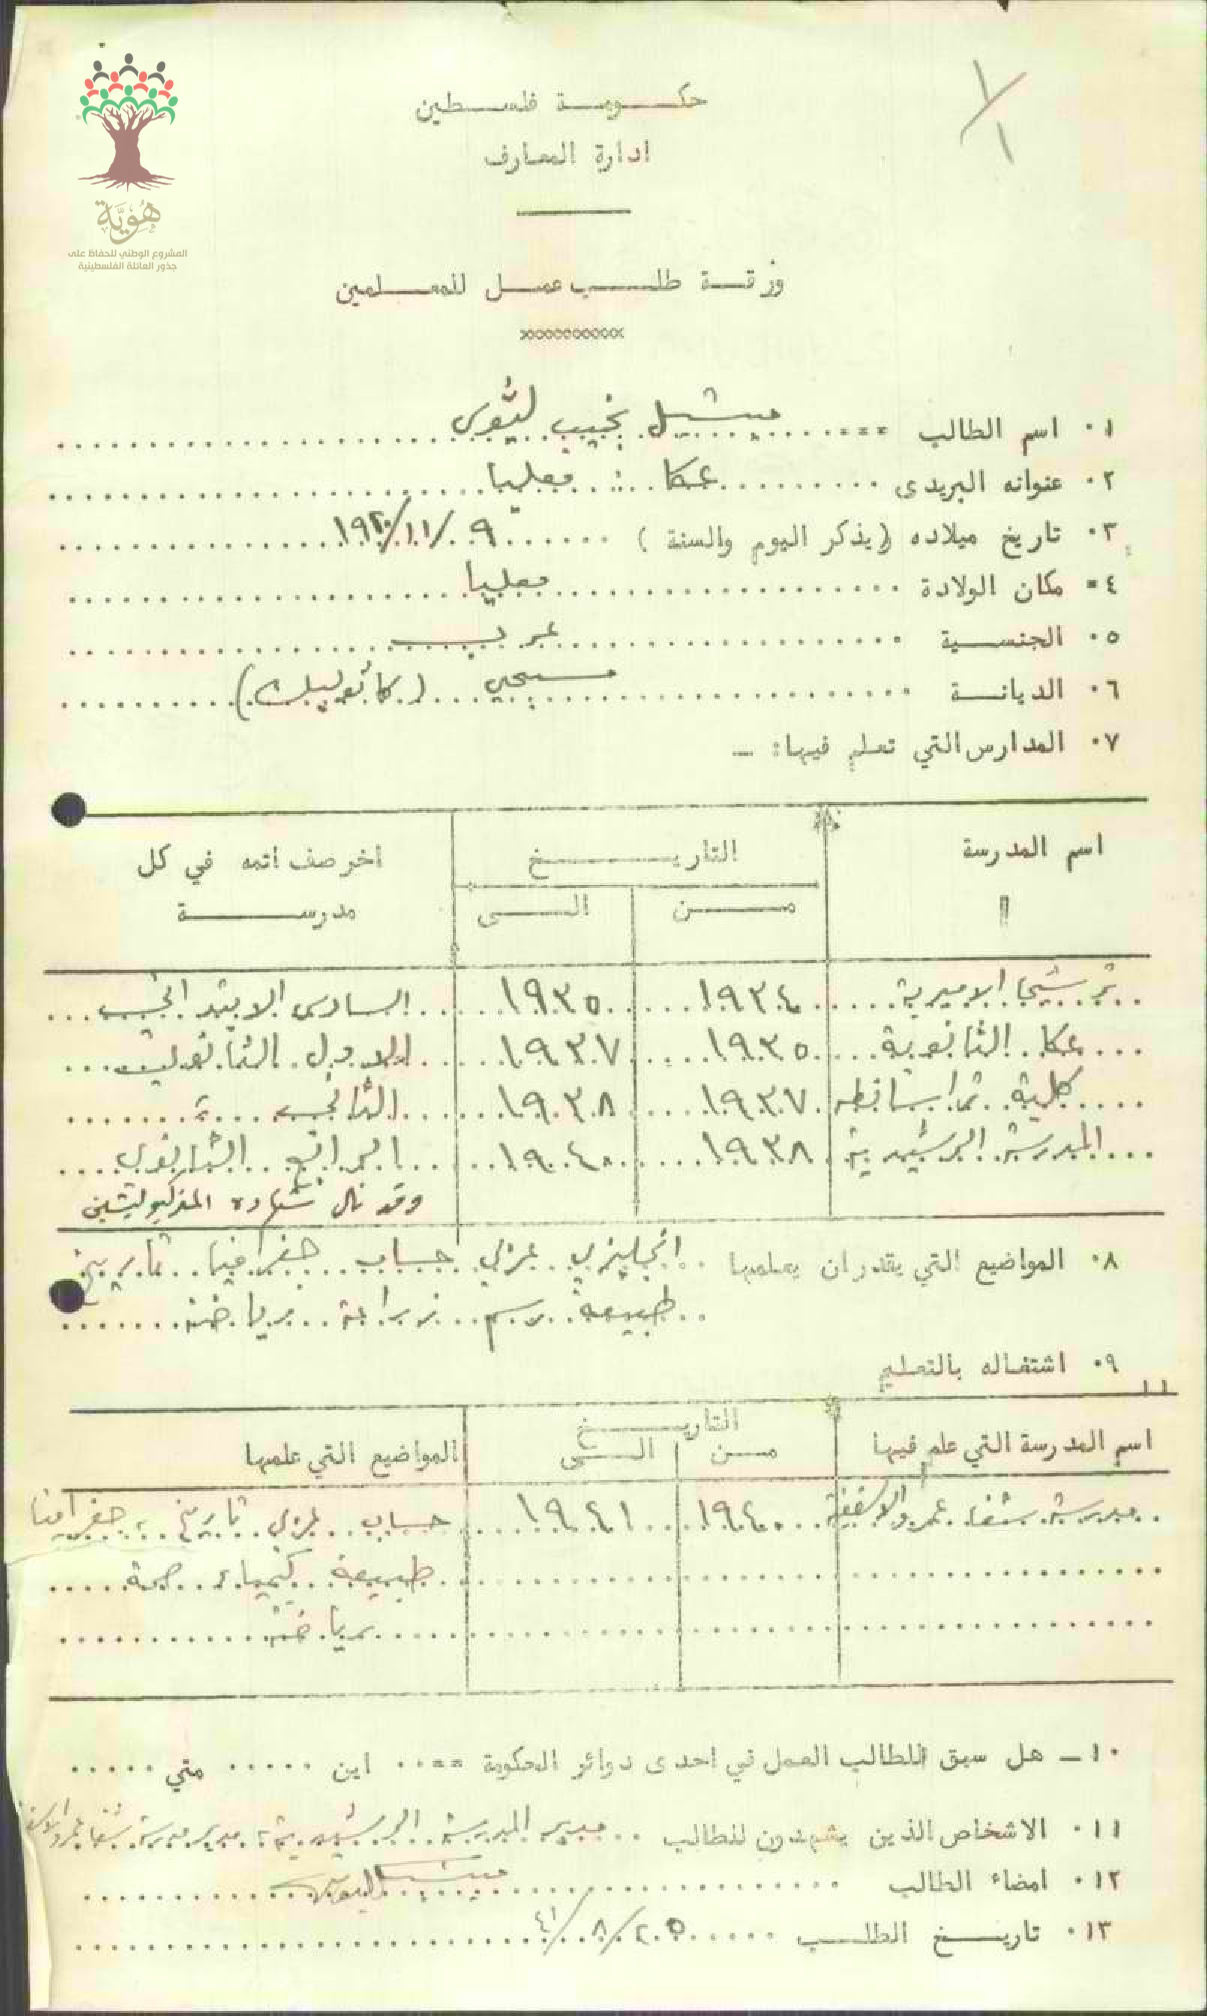 هُوِيَّة
المشروع الوطني للحفاظ على
جذور العائلة الفلسطينية
١/١
حكومة فلسطين
ادارة المعارف
ورقة طلب عمل للمعلمين
١٠ اسم الطالب ميشيل نجيب ليوس
٢٠ عنوانه البريدى عكا : معليا
٣٠ تاريخ ميلاده (يذكر اليوم والسنة) ٩/١١/١٩٢٠
٤= مكان الولادة معليا
٥٠ الجنسية عربي
٦٠ الديانة مسيحي (كاثوليك)
٧٠ المدارس التي تعلم فيها: ــ
اسم المدرسة التاريخ اخر صف اتمه في كل
" من الى مدرسة
ترشيحا الاميرية ١٩٣٤ ١٩٣٥ السادس الابتدائي
عكا الثانوية ١٩٣٥ ١٩٣٧ الاول الثانوي
كلية تراسانطه ١٩٣٧ ١٩٣٨ الثاني
المدرسة الرشيدية ١٩٣٨ ١٩٤٠ الرابع الثانوي
وقد نال شهادة المتركيوليشن
٨٠ المواضيع التي يقدر ان يعلمها انجليزي عربي حساب جغرافيا تاريخ
طبيعة رسم زراعة رياضة
٩٠ اشتغاله بالتعليم
اسم المدرسة التي علم فيها التاريخ المواضيع التي علمها
من الى
مدرسة شفا عمرو الاسقفية ١٩٤٠ ١٩٤١ حساب عربي تاريخ جغرافيا
طبيعة كيمياء صحة
رياضة
١٠ــ هل سبق للطالب العمل في احدى دوائر الحكومة اين متي
١١٠ الاشخاص الذين يشهدون للطالب مدير المدرسة الرشيدية، مدير مدرسة شفا عمرو
١٢٠ امضاء الطالب ميشيل ليوس
١٣٠ تاريخ الطلب ٢٠/٨/٤١